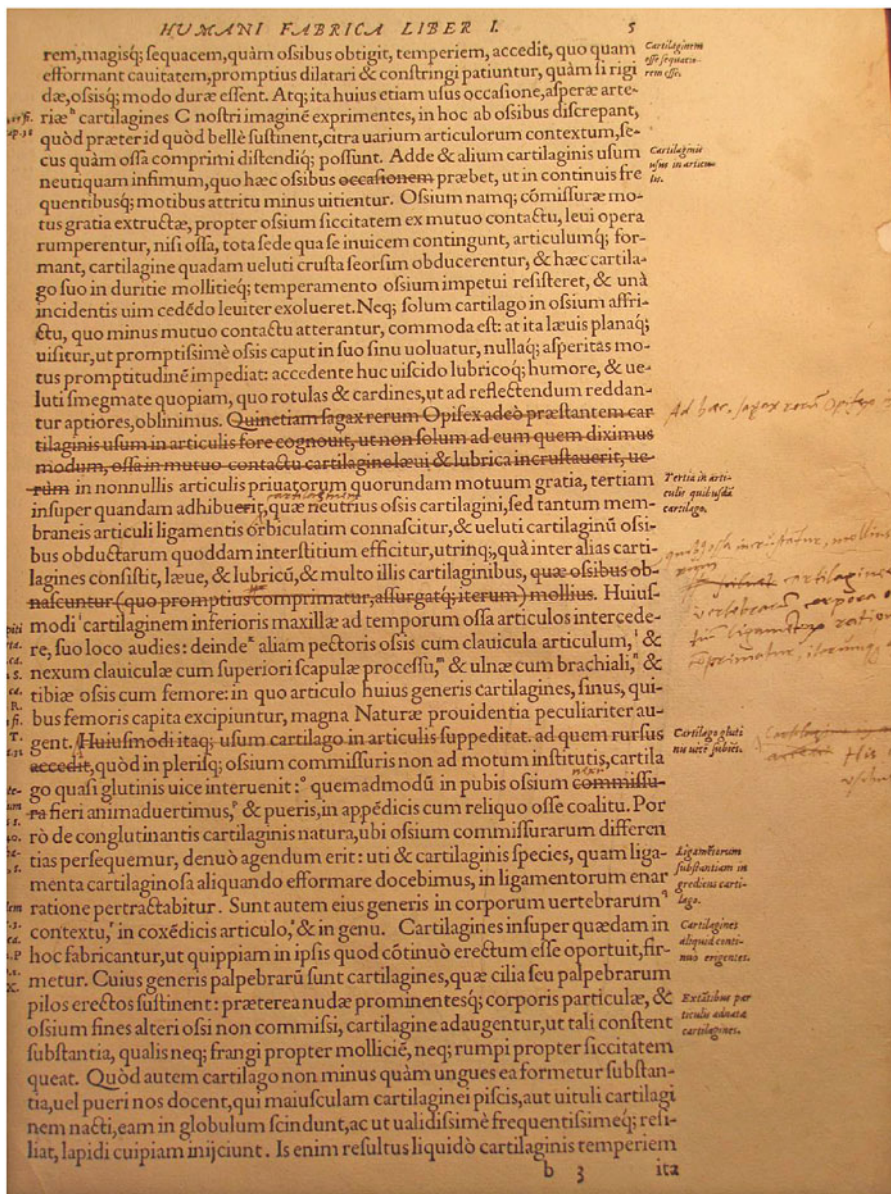 HUMANI FABRICA LIBER I. 5
rem,magisq; ſequacem,quàm oſsibus obtigit, temperiem, accedit, quo quam
efformant cauitatem,promptius dilatari & conſtringi patiuntur, quàm ſi rigi
dæ,oſsisq; modo duræ eſſent. Atq; ita huius etiam uſus occaſione,aſperæ arte-
riæ cartilagines C noſtri imaginē exprimentes, in hoc ab oſsibus diſcrepant,
quòd præter id quòd bellè ſuſtinent,citra uarium articulorum contextum,ſe-
cus quàm oſſa comprimi diſtendiq; poſſunt. Adde & alium cartilaginis uſum
neutiquam infimum,quo hæc oſsibus occaſionem præbet, ut in continuis fre
quentibusq; motibus attritu minus uitientur. Oſsium namq; cōmiſſuræ mo-
tus gratia extructæ, propter oſsium ſiccitatem ex mutuo contactu, leui opera
rumperentur, niſi oſſa, tota ſede qua ſe inuicem contingunt, articulumq; for-
mant, cartilagine quadam ueluti cruſta ſeorſim obducerentur, & hæc cartila-
go ſuo in duritie mollitieq; temperamento oſsium impetui reſiſteret, & unà
incidentis uim cedēdo leuiter exolueret. Neq; ſolum cartilago in oſsium affri-
ctu, quo minus mutuo contactu atterantur, commoda eſt: at ita læuis planaq;
uiſitur,ut promptiſsimè oſsis caput in ſuo ſinu uoluatur, nullaq; aſperitas mo-
tus promptitudinē impediat: accedente huc uiſcido lubricoq; humore, & ue-
luti ſmegmate quopiam, quo rotulas & cardines,ut ad reflectendum reddan-
tur aptiores,oblinimus. Quinetiam ſagax rerum Opifex adeò præſtantem car
tilaginis uſum in articulis fore cognouit, ut non ſolum ad eum quem diximus
modum, oſſa in mutuo contactu cartilagine læui & lubrica incruſtauerit, ue-
rùm in nonnullis articulis priuatorum quorundam motuum gratia, tertiam
inſuper quandam adhibuerit,quæ neutrius oſsis cartilagini,ſed tantum mem-
braneis articuli ligamentis orbiculatim connaſcitur,& ueluti cartilaginū oſsi-
bus obductarum quoddam interſtitium efficitur,utrinq;,quà inter alias carti-
lagines conſiſtit, læue, & lubricū,& multo illis cartilaginibus, quæ oſsibus ob-
naſcuntur (quo promptius comprimatur,aſſurgatq; iterum) mollius. Huiuſ-
modi cartilaginem inferioris maxillæ ad temporum oſſa articulos intercede-
re, ſuo loco audies: deinde aliam pectoris oſsis cum clauicula articulum, &
nexum clauiculæ cum ſuperiori ſcapulæ proceſſu, & ulnæ cum brachiali, &
tibiæ oſsis cum femore: in quo articulo huius generis cartilagines, ſinus, qui-
bus femoris capita excipiuntur, magna Naturæ prouidentia peculiariter au-
gent. Huiuſmodi itaq; uſum cartilago in articulis ſuppeditat. ad quem rurſus
accedit,quòd in pleriſq; oſsium commiſſuris non ad motum inſtitutis,cartila
go quaſi glutinis uice interuenit: quemadmodū in pubis oſsium commiſſu-
ra fieri animaduertimus, & pueris, in appēdicis cum reliquo oſſe coalitu. Por
rò de conglutinantis cartilaginis natura,ubi oſsium commiſſurarum differen
tias perſequemur, denuò agendum erit: uti & cartilaginis ſpecies, quam liga-
menta cartilaginoſa aliquando efformare docebimus, in ligamentorum enar
ratione pertractabitur. Sunt autem eius generis in corporum uertebrarum
contextu, in coxēdicis articulo, & in genu. Cartilagines inſuper quædam in
hoc fabricantur,ut quippiam in ipſis quod cōtinuò erectum eſſe oportuit,fir-
metur. Cuius generis palpebrarū ſunt cartilagines,quæ cilia ſeu palpebrarum
pilos erectos ſuſtinent: præterea nudæ prominentesq; corporis particulæ, &
oſsium fines alteri oſsi non commiſsi, cartilagine adaugentur,ut tali conſtent
ſubſtantia, qualis neq; frangi propter molliciē, neq; rumpi propter ſiccitatem
queat. Quòd autem cartilago non minus quàm ungues ea formetur ſubſtan-
tia,uel pueri nos docent,qui maiuſculam cartilaginei piſcis,aut uituli cartilagi
nem nacti,eam in globulum ſcindunt,ac ut ualidiſsimè frequentiſsimeq; reſi-
liat, lapidi cuipiam inijciunt. Is enim reſultus liquidò cartilaginis temperiem
b 3 ita
Cartilaginem
eſſe ſequatio-
rem oſſe.
Cartilaginis
uſus in articu-
lis.
Ad hæc, ſagax rerū Opifex
Tertia in arti-
culis quibuſdā
cartilago.
cartilagine
Cartilago gluti
nis uice ſubiēs.
His
Ligamētorum
ſubſtantiam in
grediens carti-
lago.
Cartilagines
aliquid conti-
nuò erigentes.
Extātibus par
ticulis adnatæ
cartilagines.